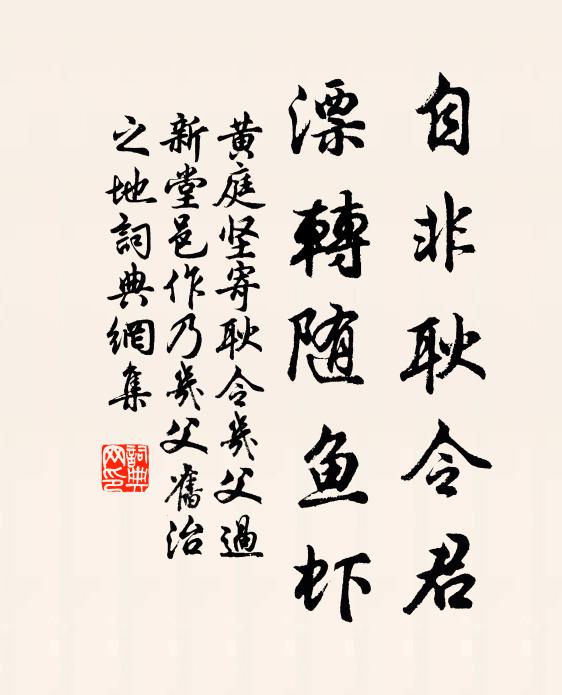 自非耿令君
漂轉随鱼虾
黄庭坚寄耿令幾父過
新堂邑作乃幾父舊治
之地詞典網集
詞典网印